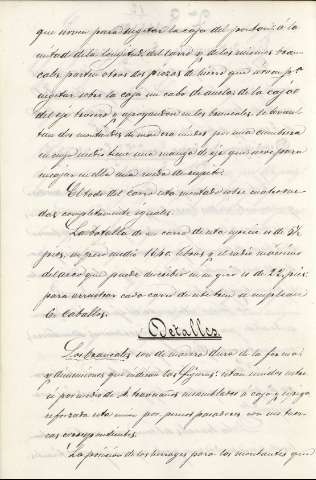 que sirven para sujetar la caja del ponton: á la
mitad de la longitud del carro y de los mismos bran-
cales parten otras dos piezas de hierro que sirven pª
sujetar sobre la caja un cabo de
del eje trasero y apoyandose en los brancales, se levan-
tan dos montantes de madera unidos por una
en cuyo medio tiene una manga de eje que sirve para
en ella una rueda de respeto.
El todo del carro esta montado sobre cuatro rue-
das completamente iguales.
La batalla de un carro de esta especie es de
pies, su peso medio 1640 libras y el radio máximo
del arco que puede describir en su giro es de 22, pies
para arrastrar cada carro de este tren se emplean
caballos.
Detalles
Los brancales son de madera dura de la forma
y dimensiones que indican las figuras: estan unidos entre
si por medio de travesaños ensamblados á caja y espiga
reforzada esta union por pernos pasadores con sus tuer-
cas correspondientes.
La posicion de los herrajes para los montantes que